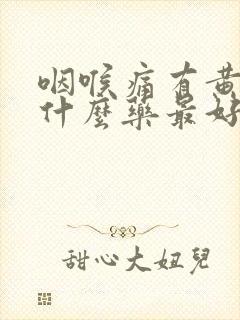 咽喉痛有黄
什麼藥最好
甜心大妞兒